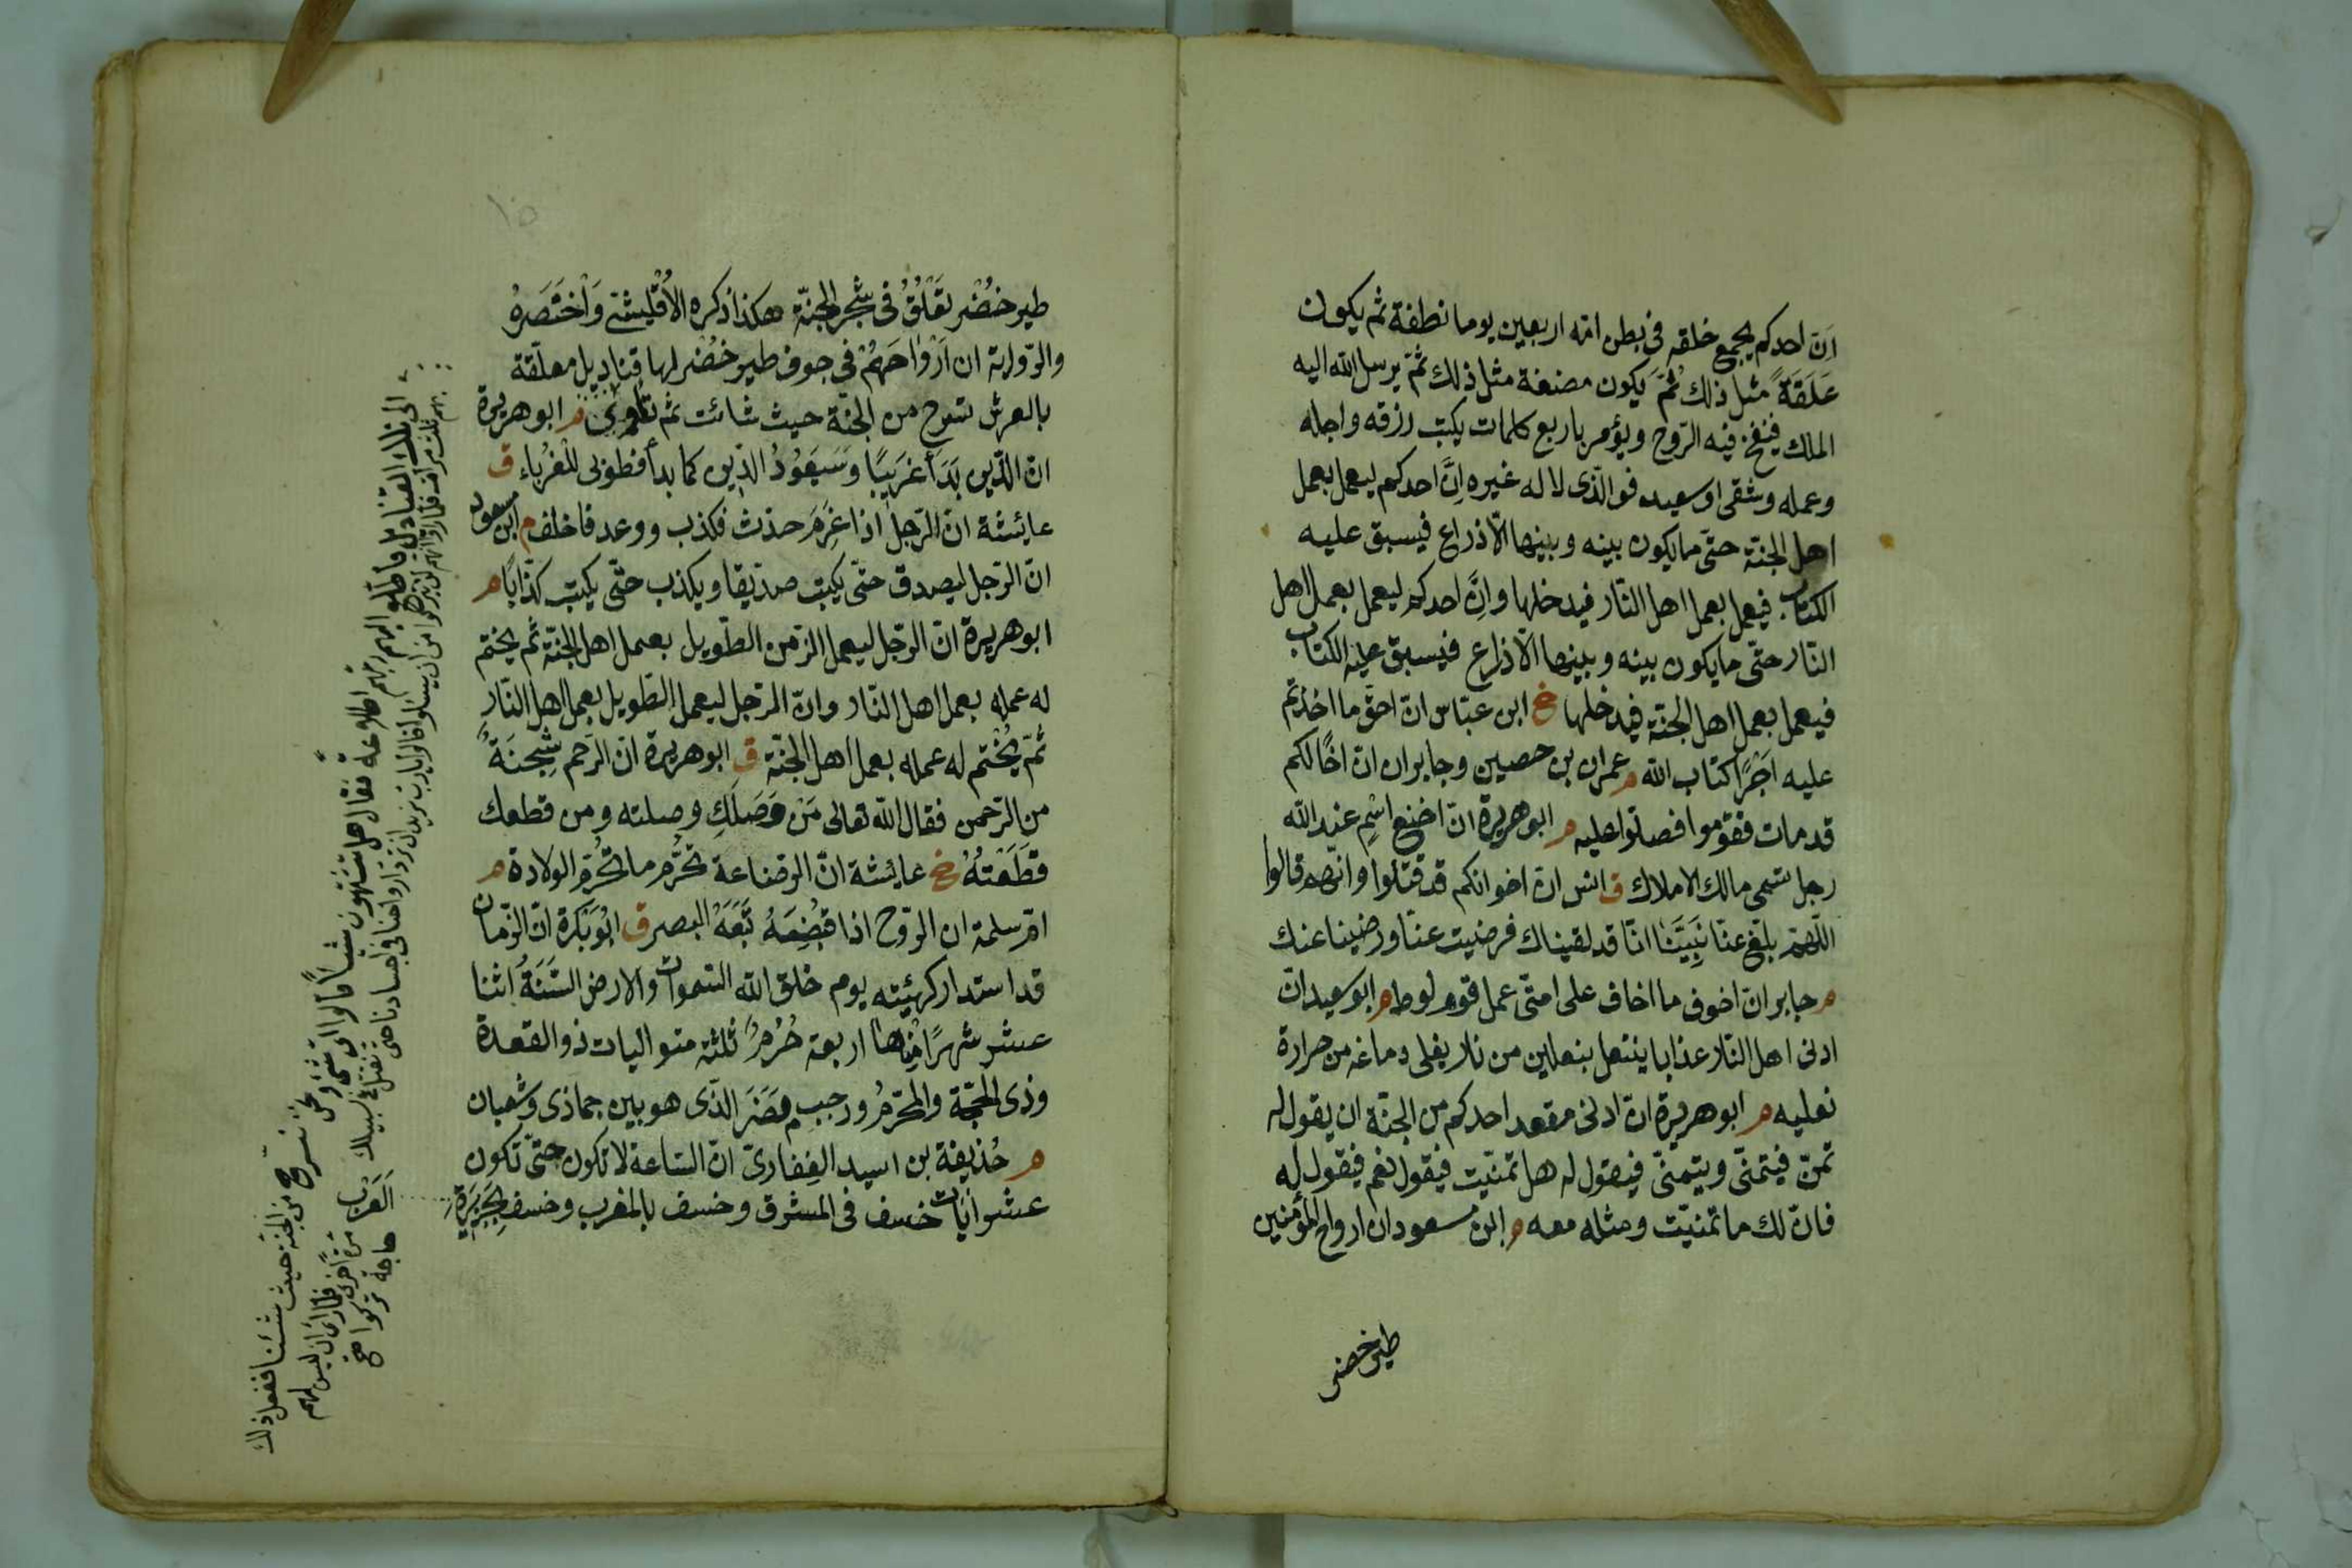 اَنّ احدكم يجمع خلقه فى بطن امّه اربعين يوما نطفة ثم يكون
عَلَقَةً مثل ذلك ثُمَّ يكون مضغة مثل ذلك ثمّ يرسل الله اليه
الملك فينفخ فيه الرّوح ويؤمر باربع كلمات يكتب رزقه واجله
وعمله وشقى او سعيد فوالذّى لا له غيره اِنَّ احدكم ليعمل بعمل
اهل الجنّة حتّى ما يكون بينه وبينها الّا ذراع فيسبق عليه
الكتاب فيعمل بعمل اهل النّار فيدخلها واِنَّ احدكم ليعمل بعمل اهل
النّار حتّى ما يكون بينه وبينها الّا ذراع فيسبق عليه الكتاب
فيعمل بعمل اهل الجنّة فيدخلها خ ابن عبّاس انّ احقّ ما اخذتم
عليه اَجْرًا كتاب الله م عمران بن حصين وجابر ان انّ اخًا لكم
قد مات فقوموا فصلّوا عليه م ابو هريرة انّ اخنع اسْمٍ عند الله
رجل تسمى مالك الاملاك ق انس انّ اخوانكم قد قتلوا وانّهم قالوا
اللّهمّ بلّغ عنّا نَبِيَّنَا انّا قد لقيناك فرضيت عنّا ورضينا عنك
م جابر انّ اخوف ما اخاف على امتّى عمل قوم لوط م ابو سعيد انّ
ادنى اهل النّار عذابا ينتعل بنعلين من نار يغلى دماغه من حرارة
نعليه م ابو هريرة انّ ادنى مقعد احدكم من الجنّة ان يقول له
تمنّ فيتمنّى ويتمنّى فيقول له هل تمنّيت فيقول نعم فيقول له
فانّ لك ما تمنّيت ومثله معه م ابن مسعود ان ارواح المؤمنين
طير خضر
طير خُضْر تَعْلُقُ فى شجر الجنّة هكذا ذكره الاُقْلِيشىّ وَاخْتَصَرهُ
والرّواية ان اَرْوَاحَهُمْ فى جوف طير خُضْر لها قناديل معلّقة
بالعرش تسرح من الجنّة حيث شائت ثم تأوى م ابو هريرة
انّ الدّين بَدَأَ غَرِيبًا وَسَيَعُوْدُ الدّين كما بدأ فطوبى للغُرَباء ق
عائشة انّ الرّجل اذا غَرِمَ حدّث فكذب ووعد فاخلف م ابن مسعود
انّ الرّجل ليصدق حتّى يكتب صدّيقا ويكذب حتّى يكتب كذّابًا م
ابو هريرة انّ الرّجل ليعمل الزّمن الطّويل بعمل اهل الجنّة ثم يختم
له عمله بعمل اهل النّار وانّ الرّجل ليعمل الطّويل بعمل اهل النّار
ثمّ يُخْتم له عمله بعمل اهل الجنّة ق ابو هريرة انّ الرّحم شِجْنَةٌ
من الرّحمن فقال الله تعالى مَنْ وَصَلَكِ وصلته ومن قطعك
قَطَعْتُهُ خ عايشة انّ الرّضاعة تُحرِّم ما تُحرِّم الولادة م
امّ سلمة ان الرّوح اذا قُبِضَ تَبِعَهُ البصر ق اَبُو بَكْرة انّ الزّمان
قد استدار كهيئته يوم خلق الله السّموات والارض السَّنَةُ اثنا
عشر شهرًا مِنْهَا اربعة حُرُمٌ ثلثة متواليات ذو القعدة
وذى الحجّة والمحرّمُ ورجب مُضَرَ الذّى هو بين جماذى وشعبان
م حُذيفة بن اسيد الغِفارىّ انّ السّاعة لا تكون حتّى تكون
عشر آيات خسف فى المشرق وخسف بالمغرب وخسف بِجَزِيرَةِ
العرب
الى تلك القناديل فاطّلع اليهم ربّهم اطلاعةً فقال هل تشتهون شيئًا قالوا اى شئ نشتهى ونحن نسرح من الجنة حيث شئنا ففعل ذلك
بهم ثلث مرات فلمّا راوا انّهم لن يتركوا من ان يسئلوا قالوا يارب نريد ان تردّ ارواحنا فى اجسادنا حتى نقتل فى سبيلك مرّة اخرى فلمّا رأى ان ليس لهم
حاجة تركوا